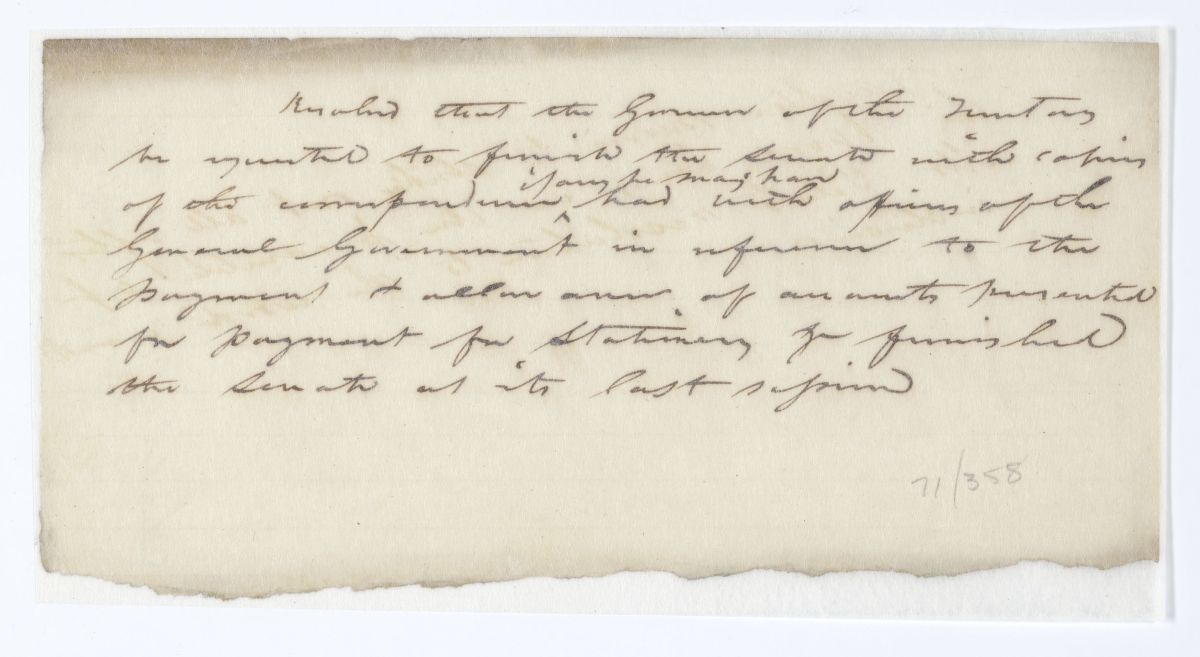 Resolved that the Governor of the Territory
be requested to furnish the Senate with copies
of the correspondence ^ had with officers of the
if any he may have
General Government in reference to the
payment & allowance of accounts presented
for payment for Stationery &c furnished
the Senate at its last session
71/358